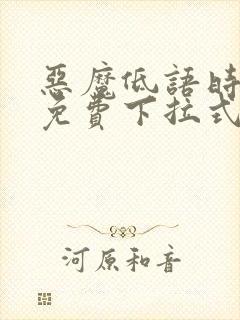 惡魔低語時
免費下拉式
河原和音